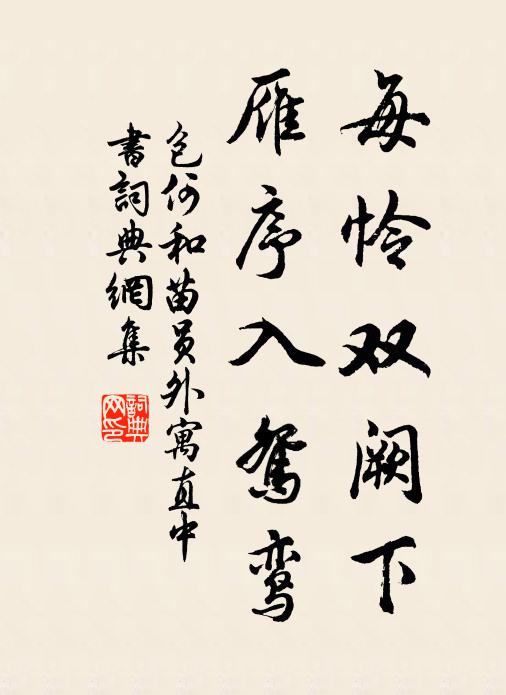 每怜双阙下
雁序入鸳鸾
包何和苗员外寓直中
書詞典網集
詞典
网印